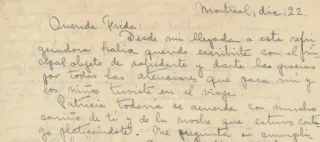 Montreal, dic. 22.
Querida Frida:
Desde mi llegada a este refri
geradora había querido escribirte con el prin
cipal objeto de saludarte y darte las gracias
por todas las atenciones que para mí y
los niños tuviste en el viaje.
Patricia todavía se acuerda con mucho
cariño de ti y de la noche que estuvo conti
go, platicándote. Me pregunta si cumpli